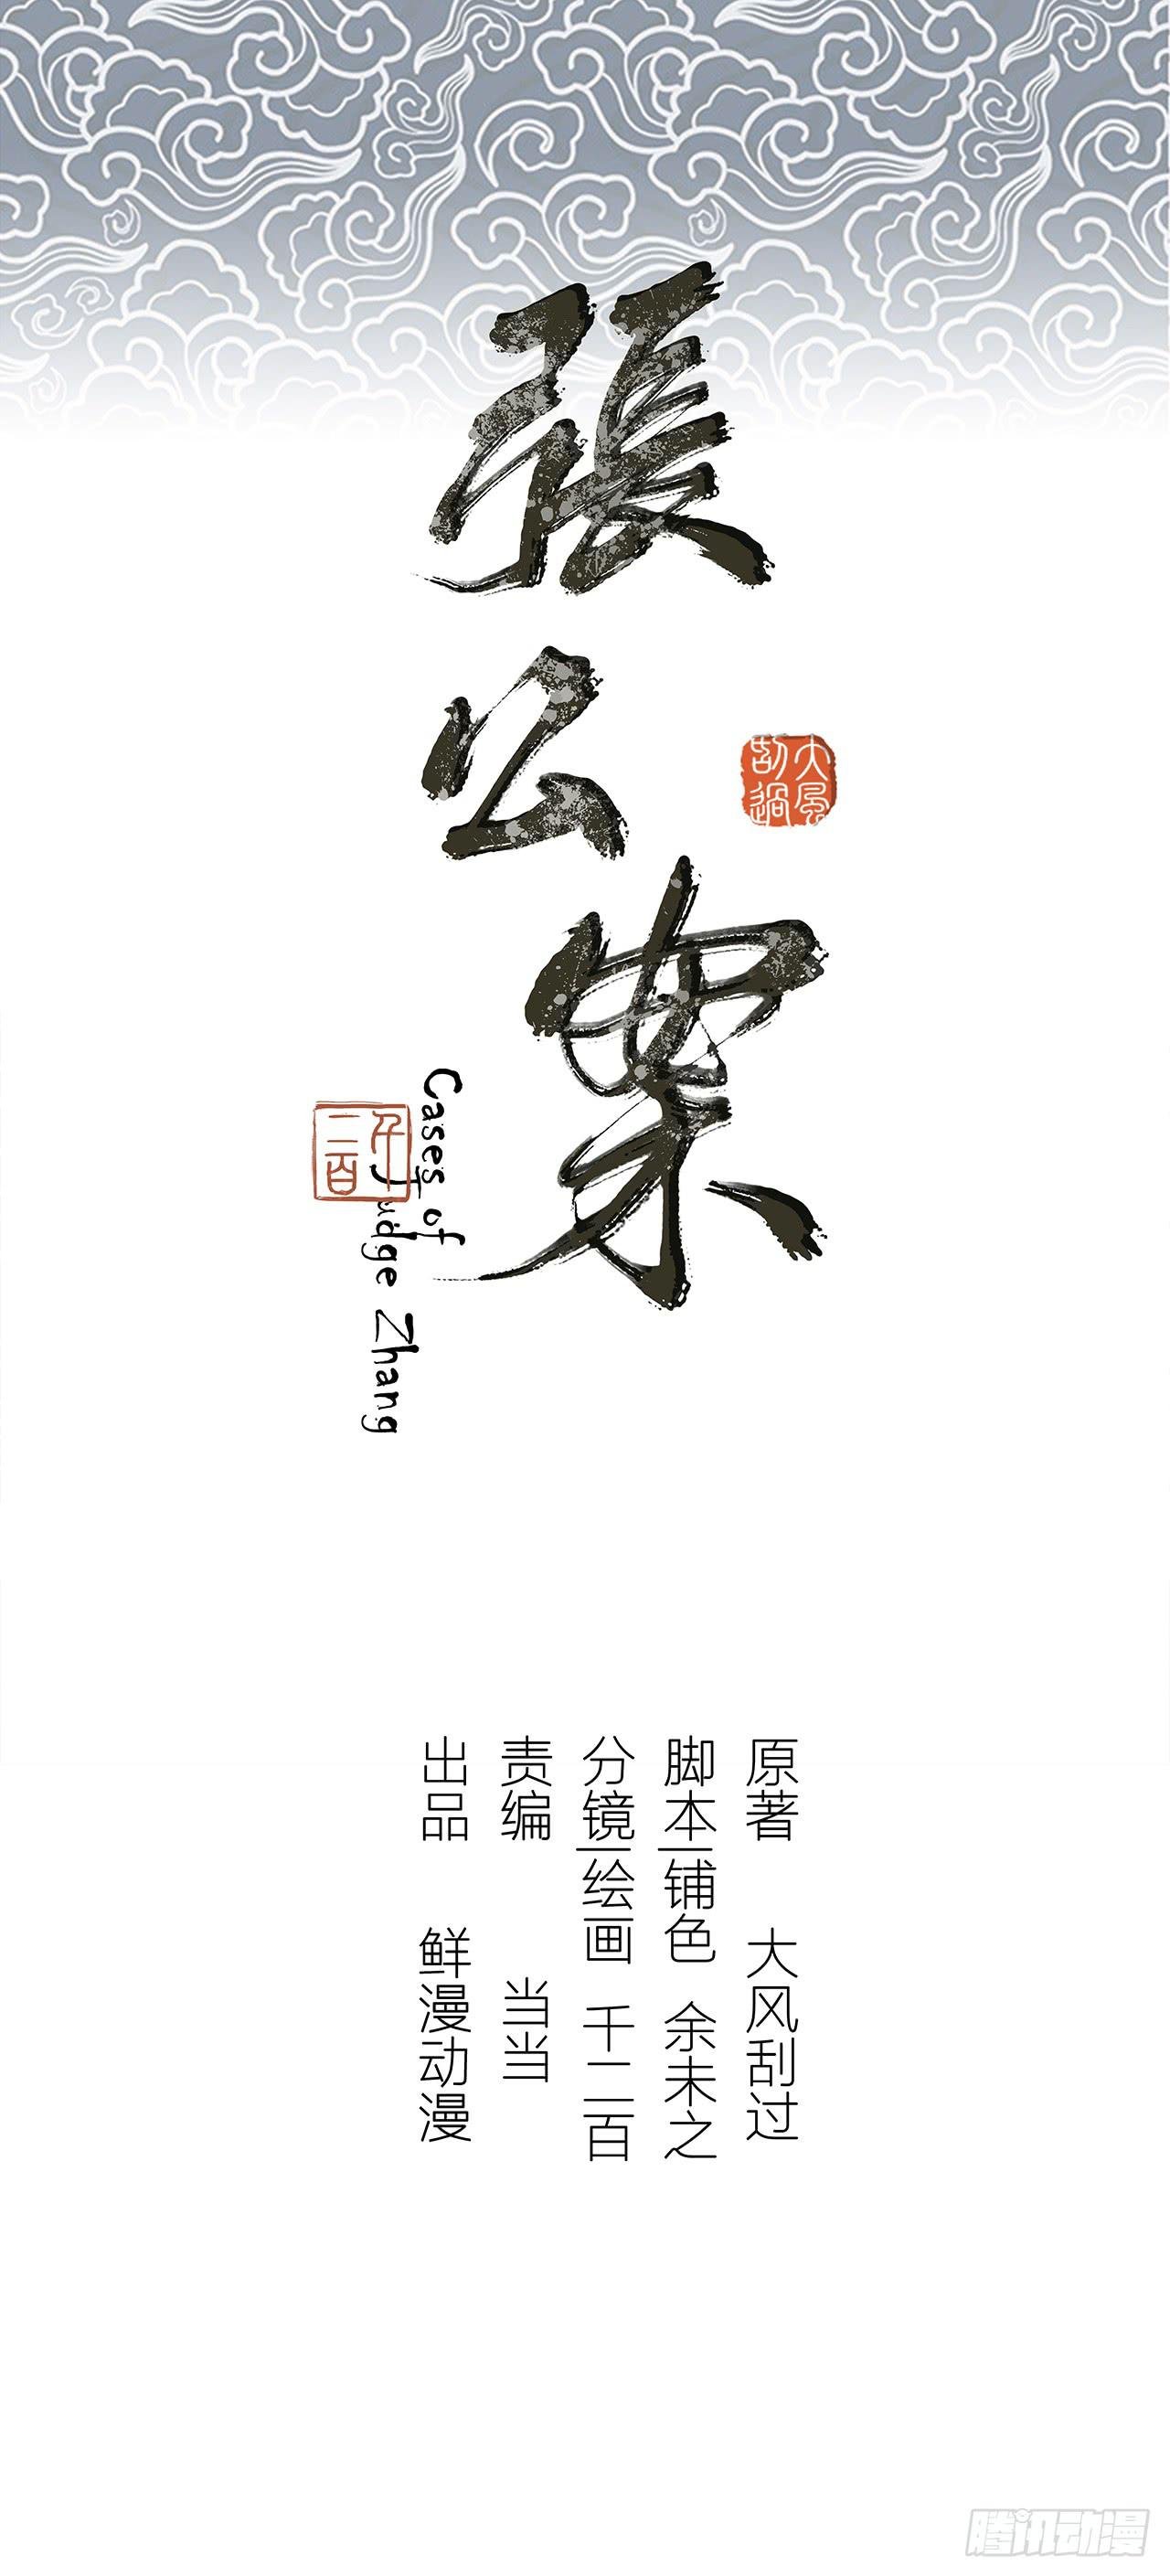 張公案
大風
刮過
Cases of
Judge Zhang
千
二百
原著 大风刮过
脚本|铺色 余未之
分镜|绘画 千二百
责编 当当
出品 鲜漫动漫
腾讯动漫